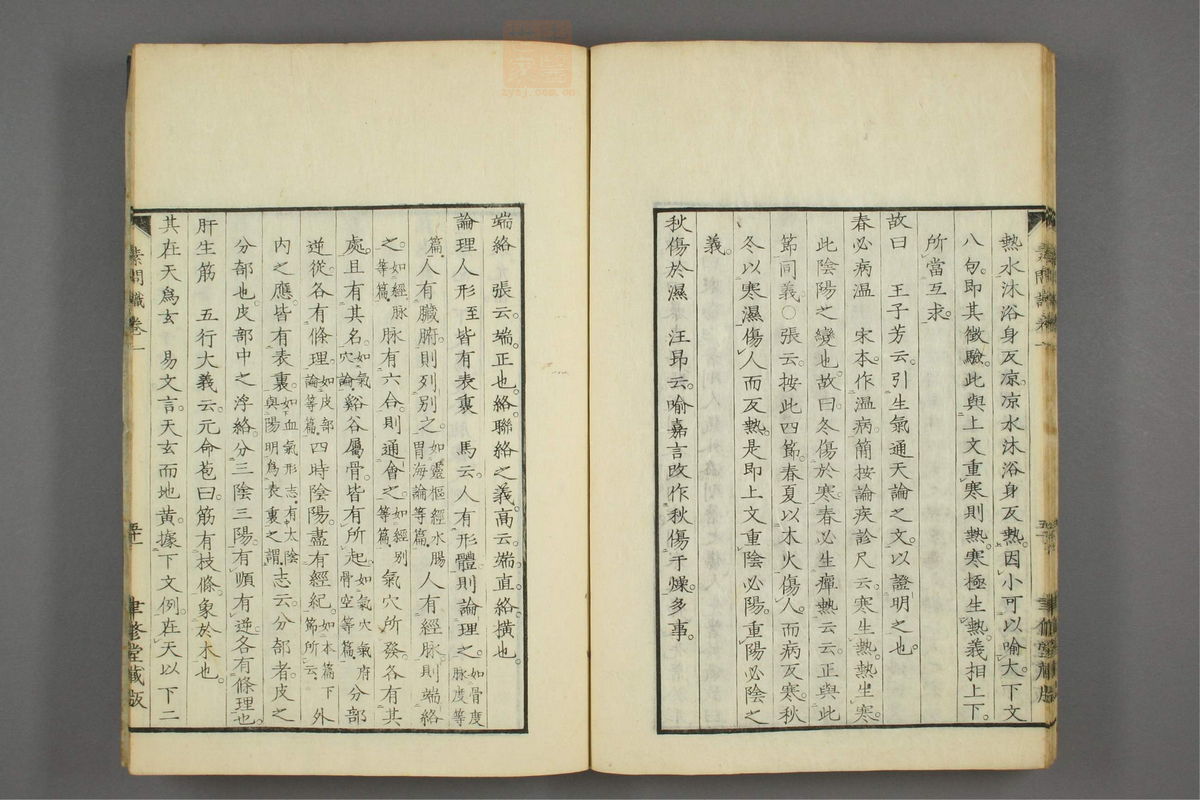 熱水沐浴身反凉凉水沐浴身反熱因小可以喻大下文
八句即其徵驗此與上文重寒則熱寒極生熱義相上下
所當互求
故曰　王子芳云引生氣通天論之文以證明之也
春必病溫　宋本作溫病簡按論疾診尺云寒生熱熱生寒
此陰陽之變也故曰冬傷於寒春必生癉熱云云正與此
節同義○張云按此四節春夏以木火傷人而病反寒秋
冬以寒濕傷人而反熱是即上文重陰必陽重陽必陰之
義
秋傷於濕　汪昂云喻嘉言改作秋傷于燥多事
端絡　張云端正也絡聯絡之義高云端直絡橫也
論理人形至皆有表裏　馬云人有形體則論理之如骨度脉度等
篇人有臟腑則列別之如靈樞經水腸胃海論等篇人有經脉則端絡
之如經脉等篇脉有六合則通會之如經別等篇氣穴所發各有其
處且有其名如氣穴論谿谷屬骨皆有所起如氣穴氣府骨空等篇分部
逆從各有條理如皮部論等篇四時陰陽盡有經紀如本篇下節所云外
內之應皆有表裏如血氣形志有太陰與陽明爲表裏之謂志云分部者皮之
分部也皮部中之浮絡分三陰三陽有順有逆各有條理也
肝生筋　五行大義云元命苞曰筋有枝條象於木也
其在天爲玄　易文言天玄而地黃據下文例在天以下二
素問識卷一
聿修堂藏版